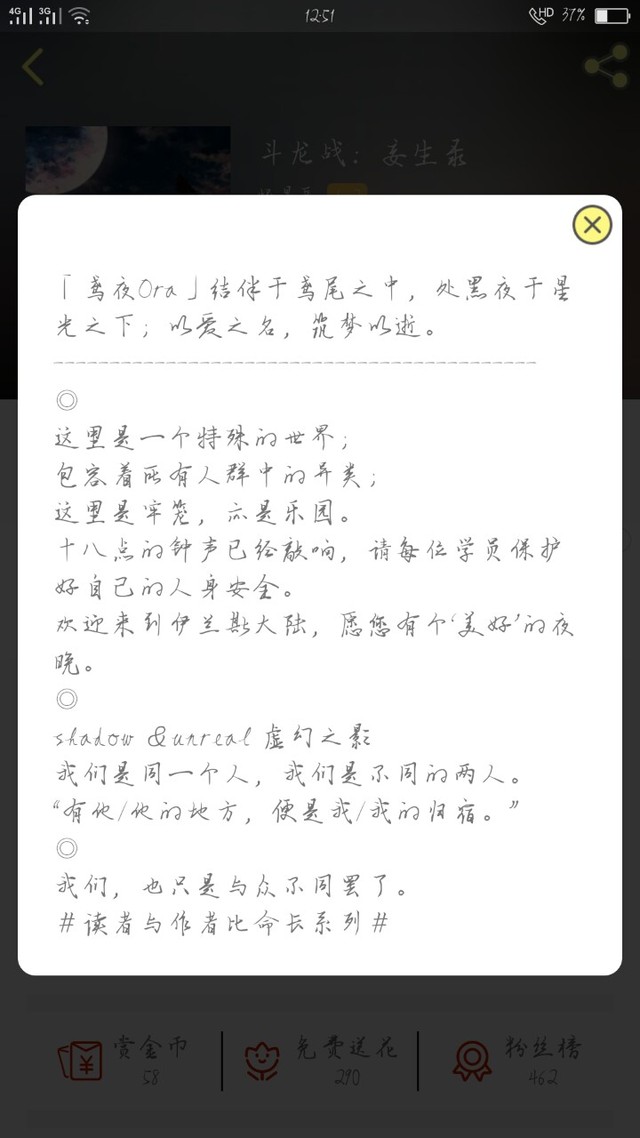 4G 3G 12:51 HD 37%
斗龙战：妄生录
「鸢夜Ora」结伴于鸢尾之中，处黑夜于星
光之下；以爱之名，筑梦以逝。
----------------------------------------
◎
这里是一个特殊的世界；
包容着所有人群中的异类；
这里是牢笼，亦是乐园。
十八点的钟声已经敲响，请每位学员保护
好自己的人身安全。
欢迎来到伊兰斯大陆，愿您有个‘美好’的夜
晚。
◎
shadow &unreal 虚幻之影
我们是同一个人，我们是不同的两人。
“有他/他的地方，便是我/我的归宿。”
◎
我们，也只是与众不同罢了。
#读者与作者比命长系列#
赏金币 免费送花 粉丝榜
58 290 462